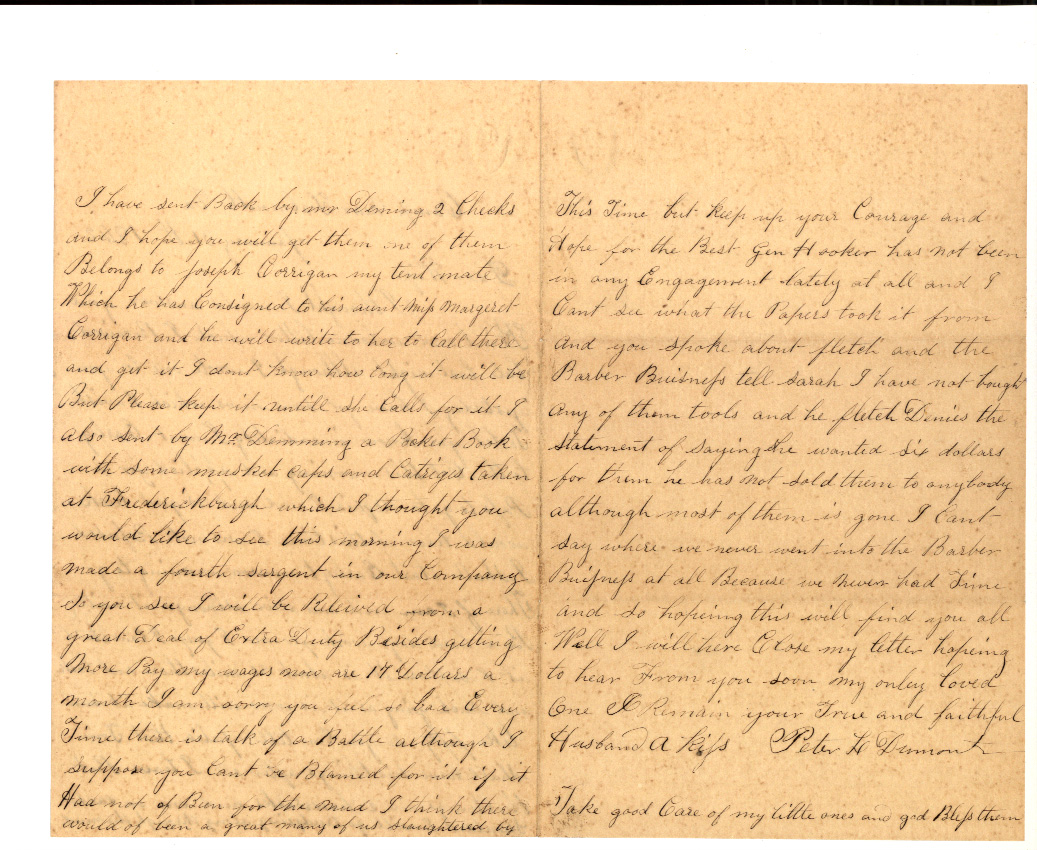 I have sent Back by mr Deming 2 Checks
and I hope you will get them one of them
Belongs to Joseph Corrigan my tent mate
Which he has Consigned to his aunt Miss Margeret
Corrigan and he will write to her to Call there
and get it I dont know how long it will be
But Please keep it untill she Calls for it I
also sent by Mr. Demming a Pocket Book
with some musket caps and Catriges taken
at Frederickburgh which I thought you
would like to see this morning I was
made a fourth sargent in our Company
So you see I will be Relieved from a
great Deal of Extra Duty Besides getting
More Pay my wages now are 17 Dollars a
month I am sorry you feel so bad Every
Time there is talk of a Battle although I
suppose you Cant be Blamed for it if it
Had not of Been for the mud I think there
would of been a great many of us slaughtered by
This Time but keep up your Courage and
Hope for the Best Gen Hooker has not been
in any Engagement lately at all and I
Cant see what the Papers took it from
and you spoke about fletch and the
Barber Buisness tell sarah I have not bought
any of them tools and he fletch Denies the
statement of saying he wanted six dollars
for them he has not sold them to anybody
although most of them is gone I Cant
say where we never went into the Barber
Buisness at all Because we never had Time
and so hopeing this will find you all
Well I will here Close my letter hopeing
to hear From you soon my onley loved
One I Remain your True and faithful
Husband A Kiss Peter L Dumont
Take good Care of my little ones and god Bless them